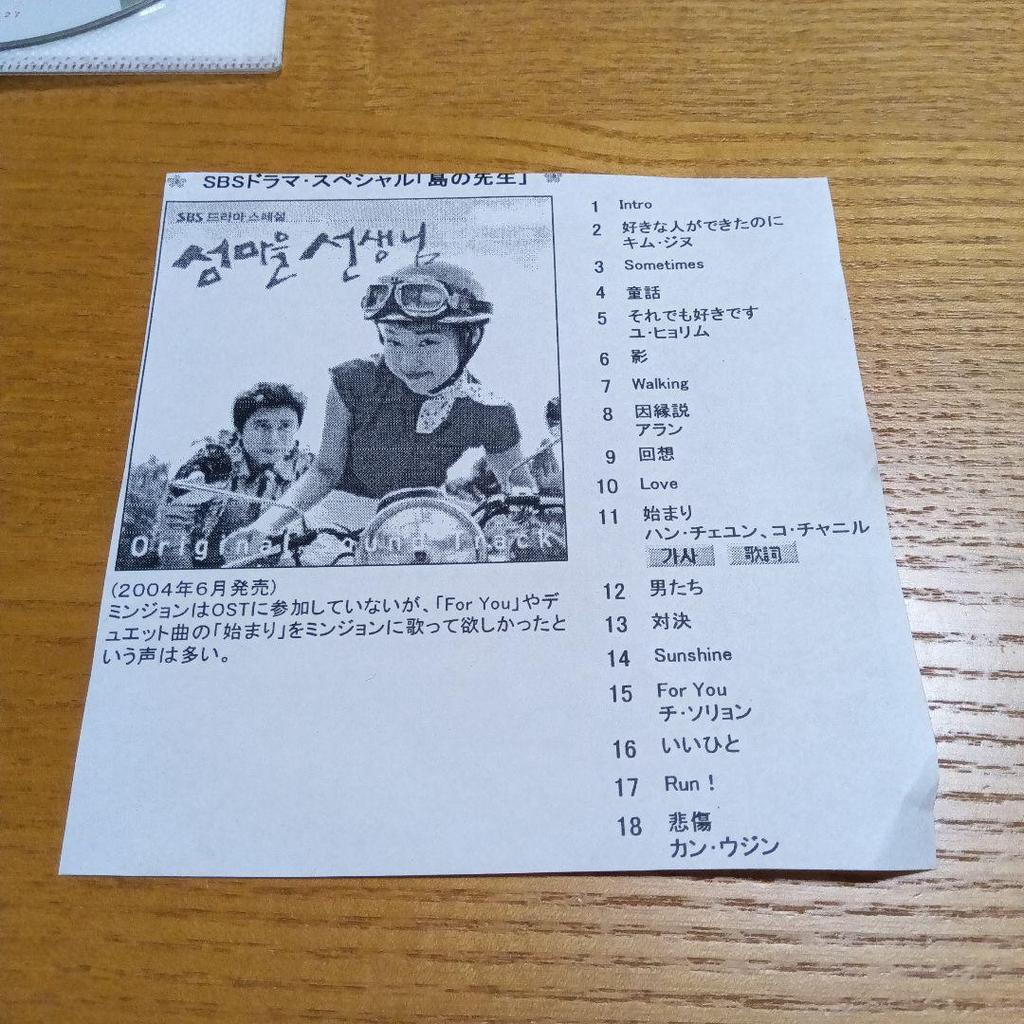 27
SBSドラマ・スペシャル「島の先生」
SBS 드라마 스페셜
섬마을 선생님
Original Sound Track
(2004年6月発売)
ミンジョンはOSTに参加していないが、「For You」やデ
ュエット曲の「始まり」をミンジョンに歌って欲しかったと
いう声は多い。
1 Intro
2 好きな人ができたのに
キム・ジヌ
3 Sometimes
4 童話
5 それでも好きです
ユ・ヒョリム
6 影
7 Walking
8 因縁説
アラン
9 回想
10 Love
11 始まり
ハン・チェユン、コ・チャニル
가사 歌詞
12 男たち
13 対決
14 Sunshine
15 For You
チ・ソリョン
16 いいひと
17 Run！
18 悲傷
カン・ウジン